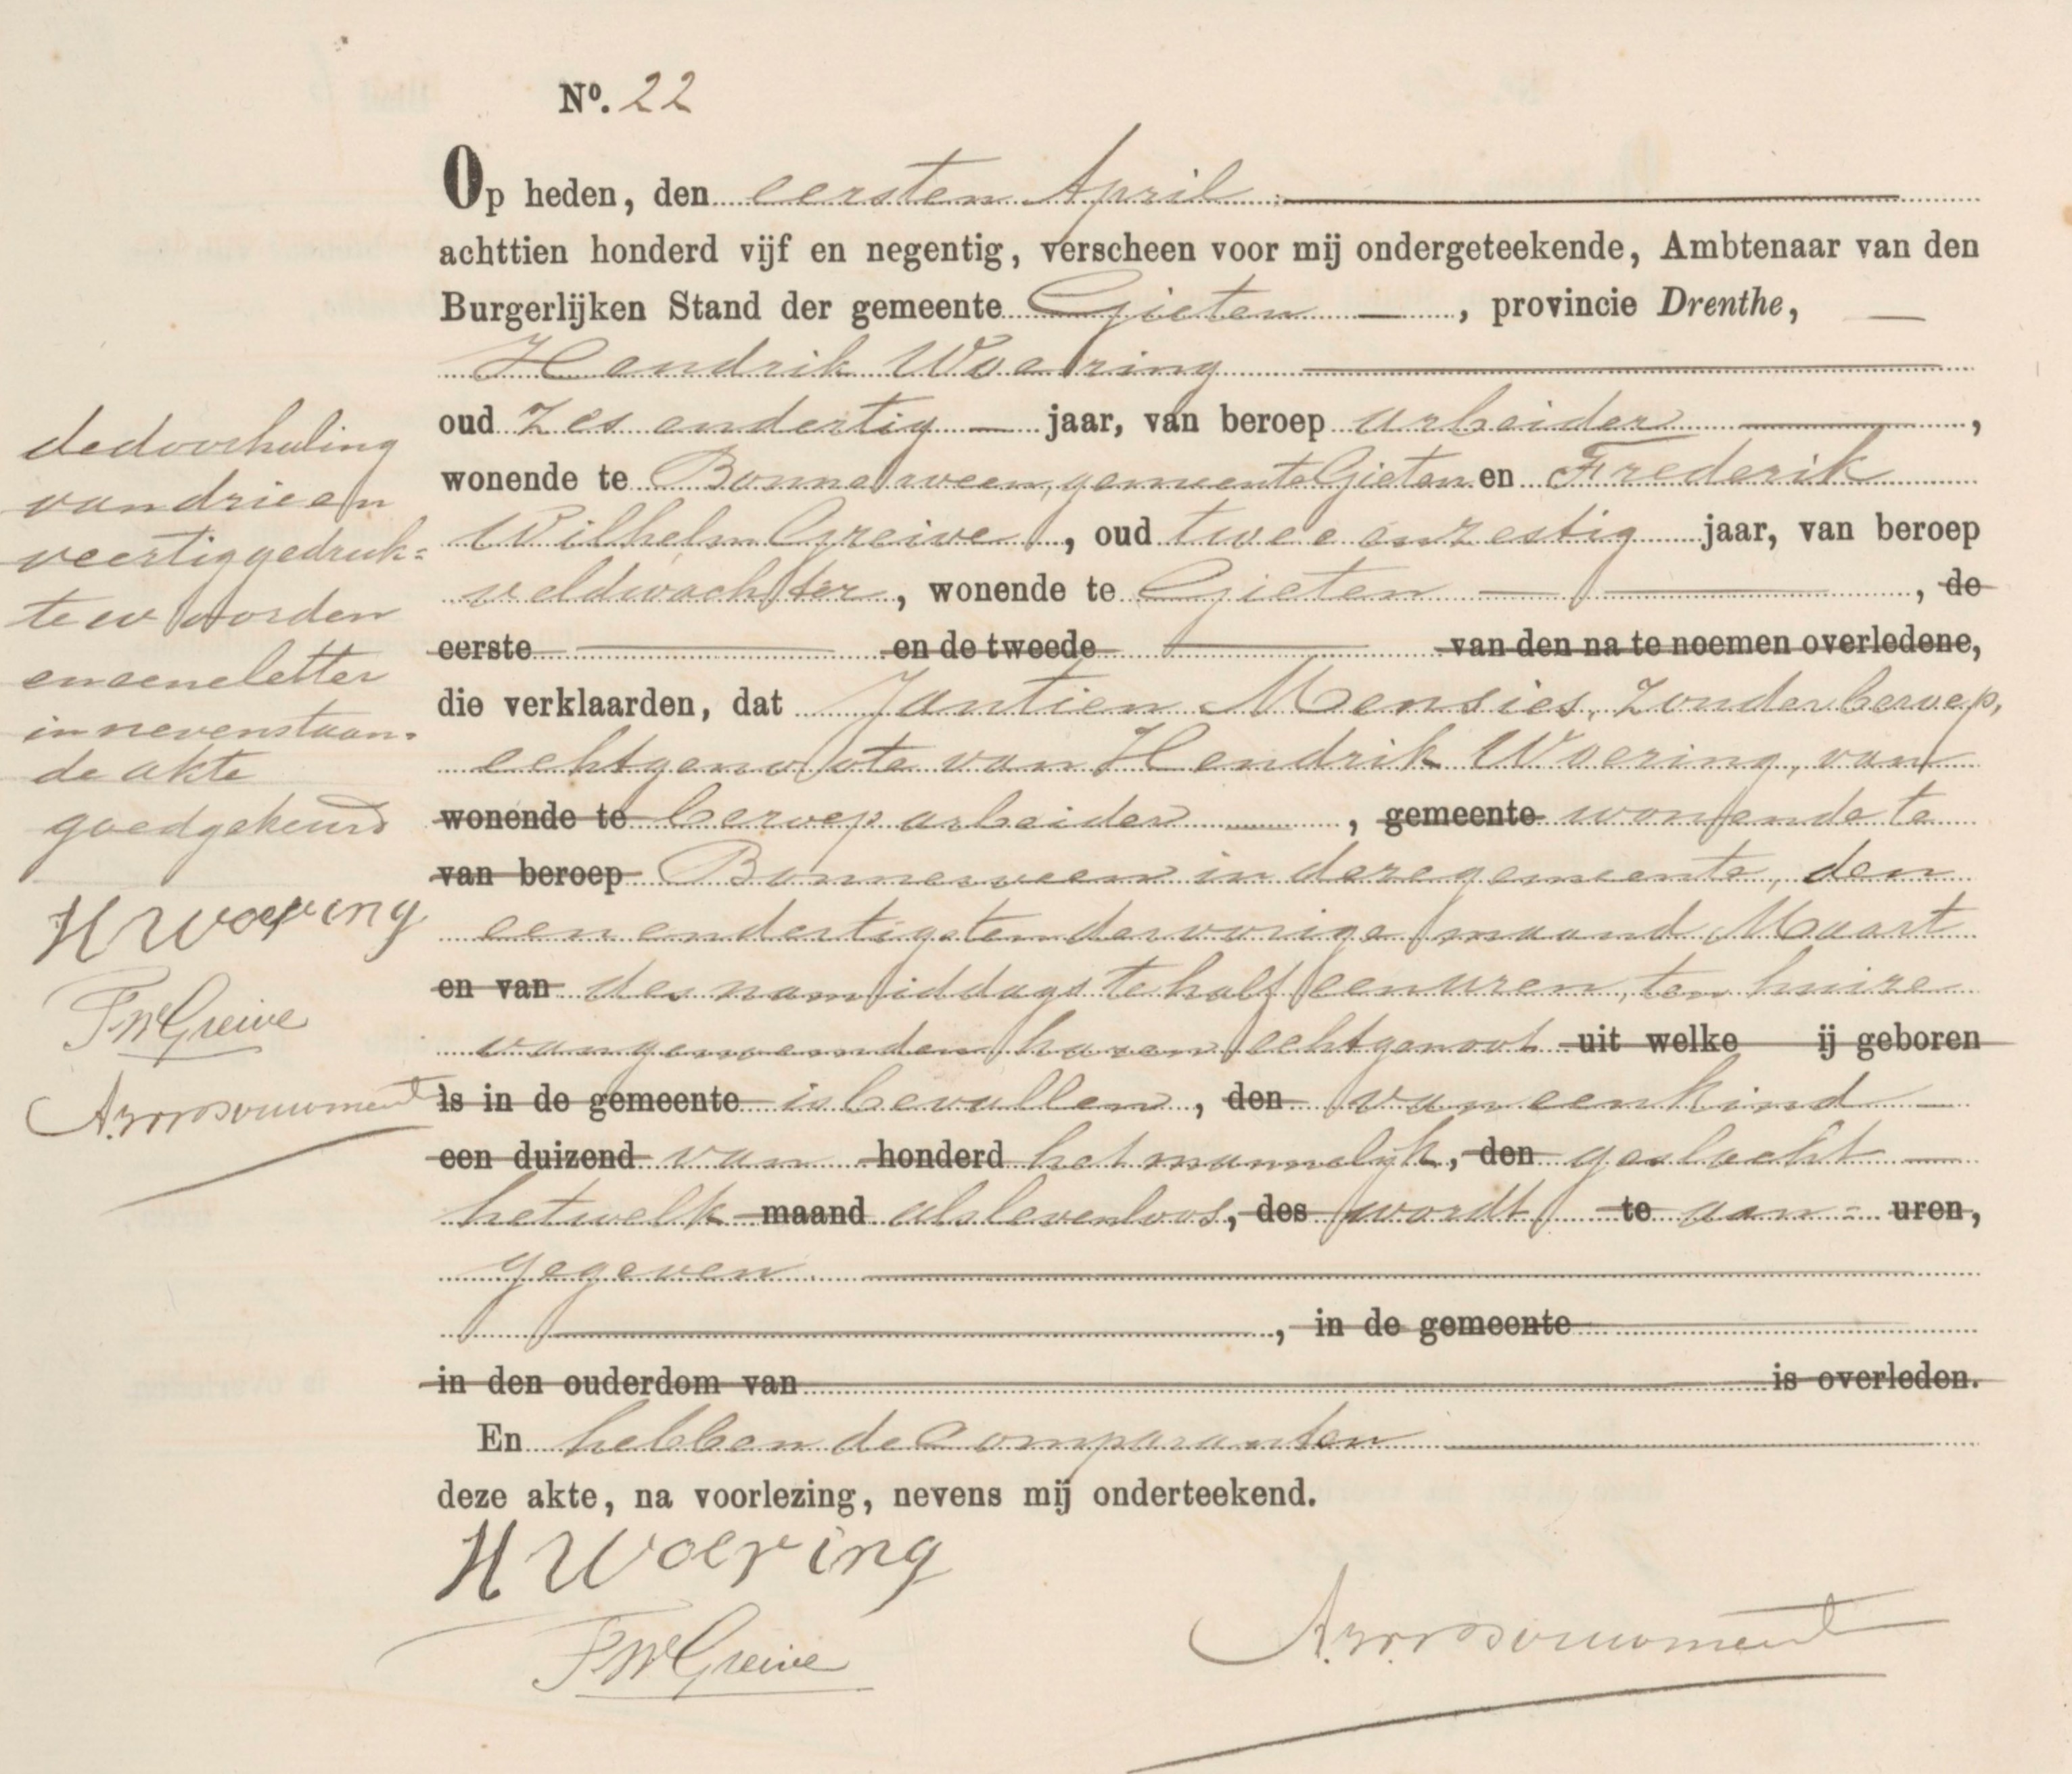 Nº. 22
Op heden, den eersten April
achttien honderd vijf en negentig, verscheen voor mij ondergeteekende, Ambtenaar van den
Burgerlijken Stand der gemeente Gieten, provincie Drenthe,
Hendrik Woering
oud zes en dertig jaar, van beroep arbeider,
wonende te Bonnerveen, gemeente Gieten en Frederik
Wilhelm Greive, oud twee en zestig jaar, van beroep
veldwachter, wonende te Gieten, de
eerste en de tweede van den na te noemen overledene,
die verklaarden, dat Jantien Mensies, zonder beroep,
echtgenoote van Hendrik Woering, van
wonende te beroep arbeider, gemeente wonende te
van beroep Bonnerveen in deze gemeente, den
een en dertigsten der vorige maand Maart
en van des namiddags te half een uren, ten huize
van genoemden haren echtgenoot uit welke ij geboren
is in de gemeente is bevallen, den van een kind
een duizend van honderd het mannelijk, den geslacht
hetwelk maand als levenloos, des wordt te aan- uren,
gegeven
, in de gemeente
in den ouderdom van is overleden.
En hebben de comparanten
deze akte, na voorlezing, nevens mij onderteekend.
H Woering
FW Greive
de doorhaling
van drie en
veertig gedruk=
te woorden
en eene letter
in nevenstaan-
de akte
goedgekeurd
H Woering
FW Greive